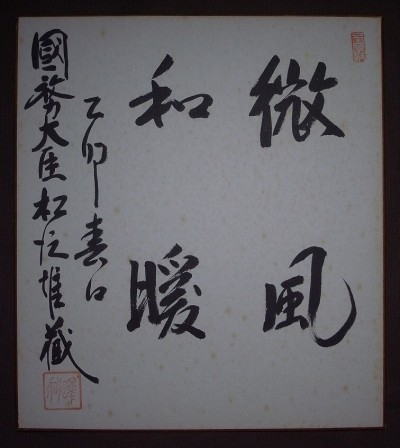 微風
和暖
乙卯春日
國務大臣松沢雄藏